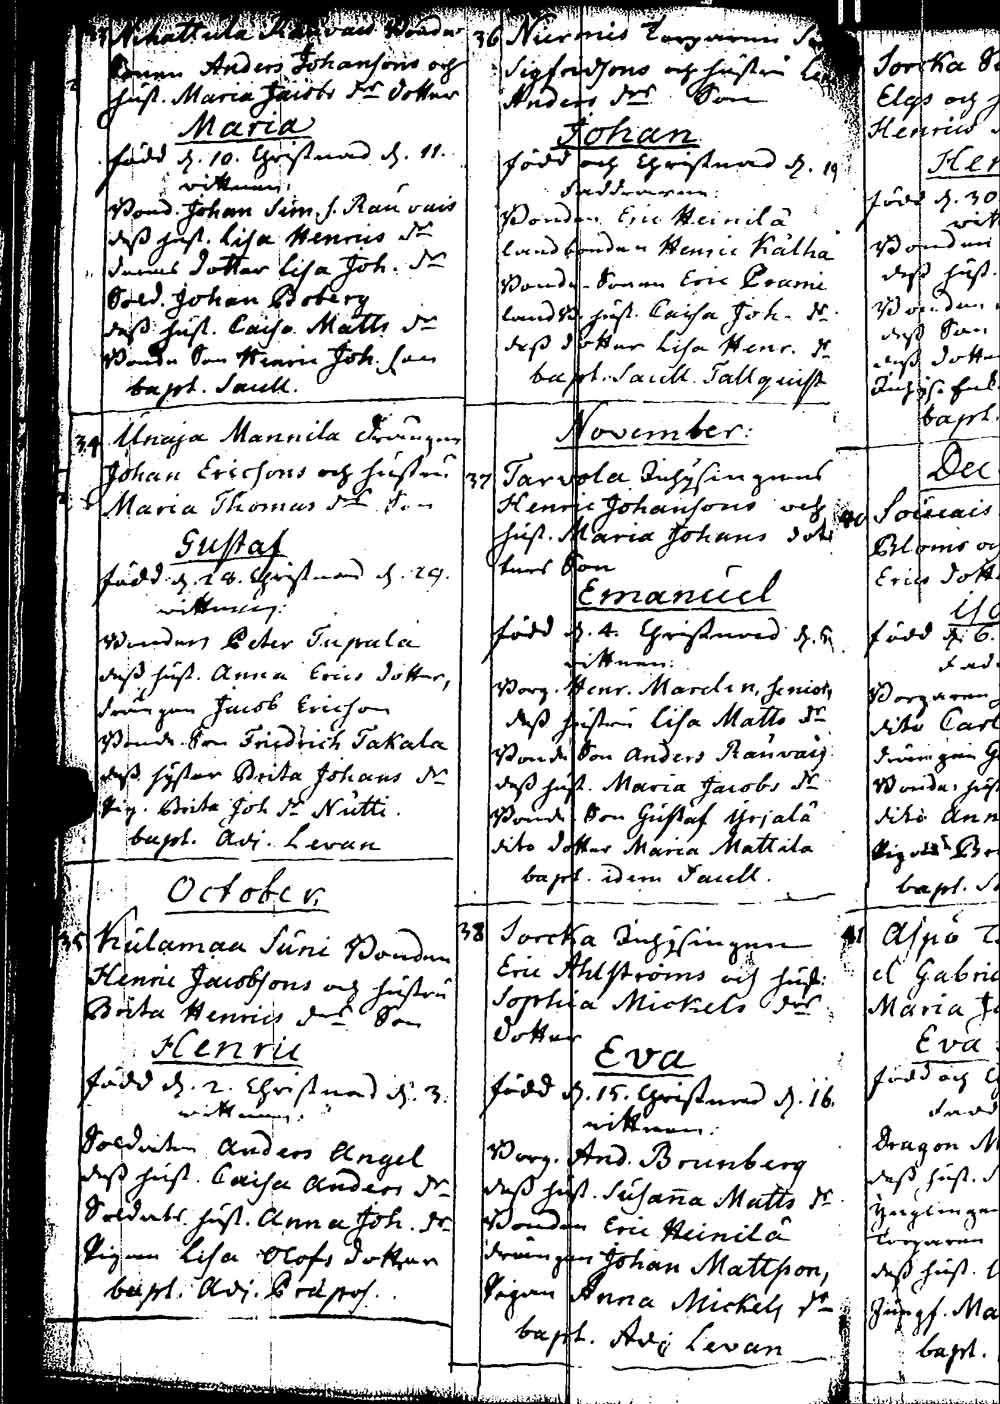 33 Nihattula Rauvais Bonde
Sonen Anders Johansons och
hust. Maria Jacobs dr dotter
Maria
född d. 10. Christnad d. 11.
wittnen:
Bond. Johan Sim. s. Rauvais
dess hust. Lisa Henrics dr
deras dotter Lisa Joh. dr
Sold. Johan Boberg
dess hust. Caisa Matts dr
Bonde Son Henric Joh. son
bapt. Sacell.
34 Unaja Mannila drängen
Johan Ericsons och hustru
Maria Thomas dr Son
Gustaf
född d. 28. Christnad d. 29.
wittnen:
Bonden Peter Tupala
dess hust. Anna Erics dotter,
drängen Jacob Ericson
Bonde Son Friedrich Takala
dess syster Brita Johans dr
Pig. Brita Joh. dr Nutti.
bapt. Adj. Levan
October.
35 Kulamaa Suni Bonden
Henric Jacobsons och hustru
Brita Henrics drs Son
Henric
född d. 2. Christnad d. 3.
wittnen:
Soldaten Anders Angel
dess hust. Caisa Anders dr
Soldats hust. Anna Joh. dr
Pigan Lisa Olofs dotter
bapt. Adj. Præpos.
36 Nurmis Torparen
Sigfridsons och hustru
Anders drs Son
Johan
född och Christnad d. 19
Faddrarne:
Bonden Eric Heinilä
Landbonden Henric Kälhä
Bonde Sonen Eric Prami
Landb. hust. Caisa Joh. dr.
dess dotter Lisa Henr. dr
bapt. Sacell. Tallquist
November:
37 Tarvola Inhysingens
Henric Johansons och
hust. Maria Johans dot
ters Son
Emanuel
född d. 4. Christnad d. 5
wittnen:
Borg. Henr. Marelin, senior,
dess hustru Lisa Matts dr
Bonde Son Anders Rauvais
dess hust. Maria Jacobs dr
Bonde Son Gustaf Yrjälä
dito dotter Maria Mattala
bapt. idem Sacell.
38 Sorcka Inhysingen
Eric Ahlströms och hust.
Sophia Mickels drs
dotter
Eva
född d. 15. Christnad d. 16.
wittnen:
Borg. And. Brunberg
dess hust. Susanna Matts dr
Bonden Eric Heinilä
drängen Johan Mattsson,
Pigan Anna Mickels dr
bapt. Adj Levan
Sorcka
Elgs och
Henrics
Hen
född d. 30
witt
Bonden
dess hust.
Bonden
dess Son
dess dotter
bapt.
Dec
40
Bloms oc
Erics dott
född d. 6.
Fad
Borgaren
dito Carl
drängen G
Bondes hust
dito Ann
Pigan Br
bapt. S
41 Aspö T
el Gabrie
Maria Jo
Eva
född och C
Fadd
Dragon M
dess hust.
Ynglingen
Torparen
dess hust.
Jungf. Ma
bapt.